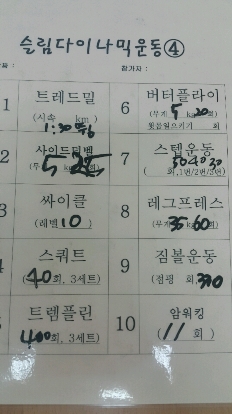 슬림다이나믹운동④
참가자 :
1 트레드밀
(시속 km)
1:30
6 버터플라이
5 20회)
윗몸일으키기 회
2 사이드
5 25
7 스텝운동
50 40 30
( 회,1번/2번/3번)
3 싸이클
(레벨 10 )
8 레그프레스
(무게 35 60회)
스쿼트
40회, 3세트)
9 짐볼운동
(점핑 회)
트렘플린
400회, 3세트)
10 암워킹
( 11 회 )